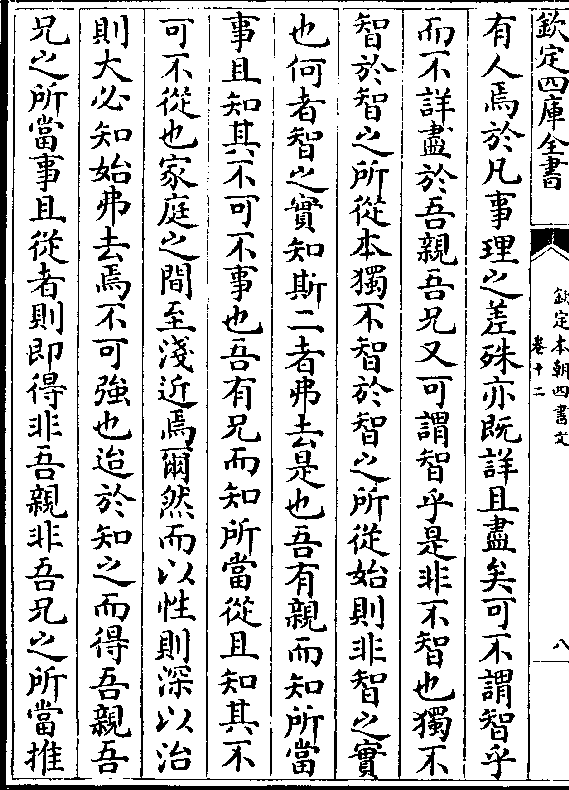 欽定四庫全書
欽定本朝四書文
卷十二
八
有人焉於凡事理之差殊亦既詳且盡矣可不謂智乎
而不詳盡於吾親吾兄又可謂智乎是非不智也獨不
智於智之所從本獨不智於智之所從始則非智之實
也何者智之實知斯二者弗去是也吾有親而知所當
事且知其不可不事也吾有兄而知所當從且知其不
可不從也家庭之間至淺近焉爾然而以性則深以治
則大必知始弗去焉不可強也迨於知之而得吾親吾
兄之所當事且從者則即得非吾親非吾兄之所當推